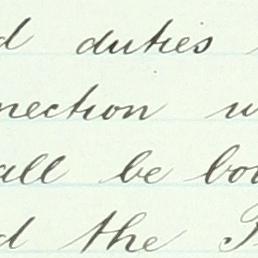 d duties
nection w
all be bou
d the